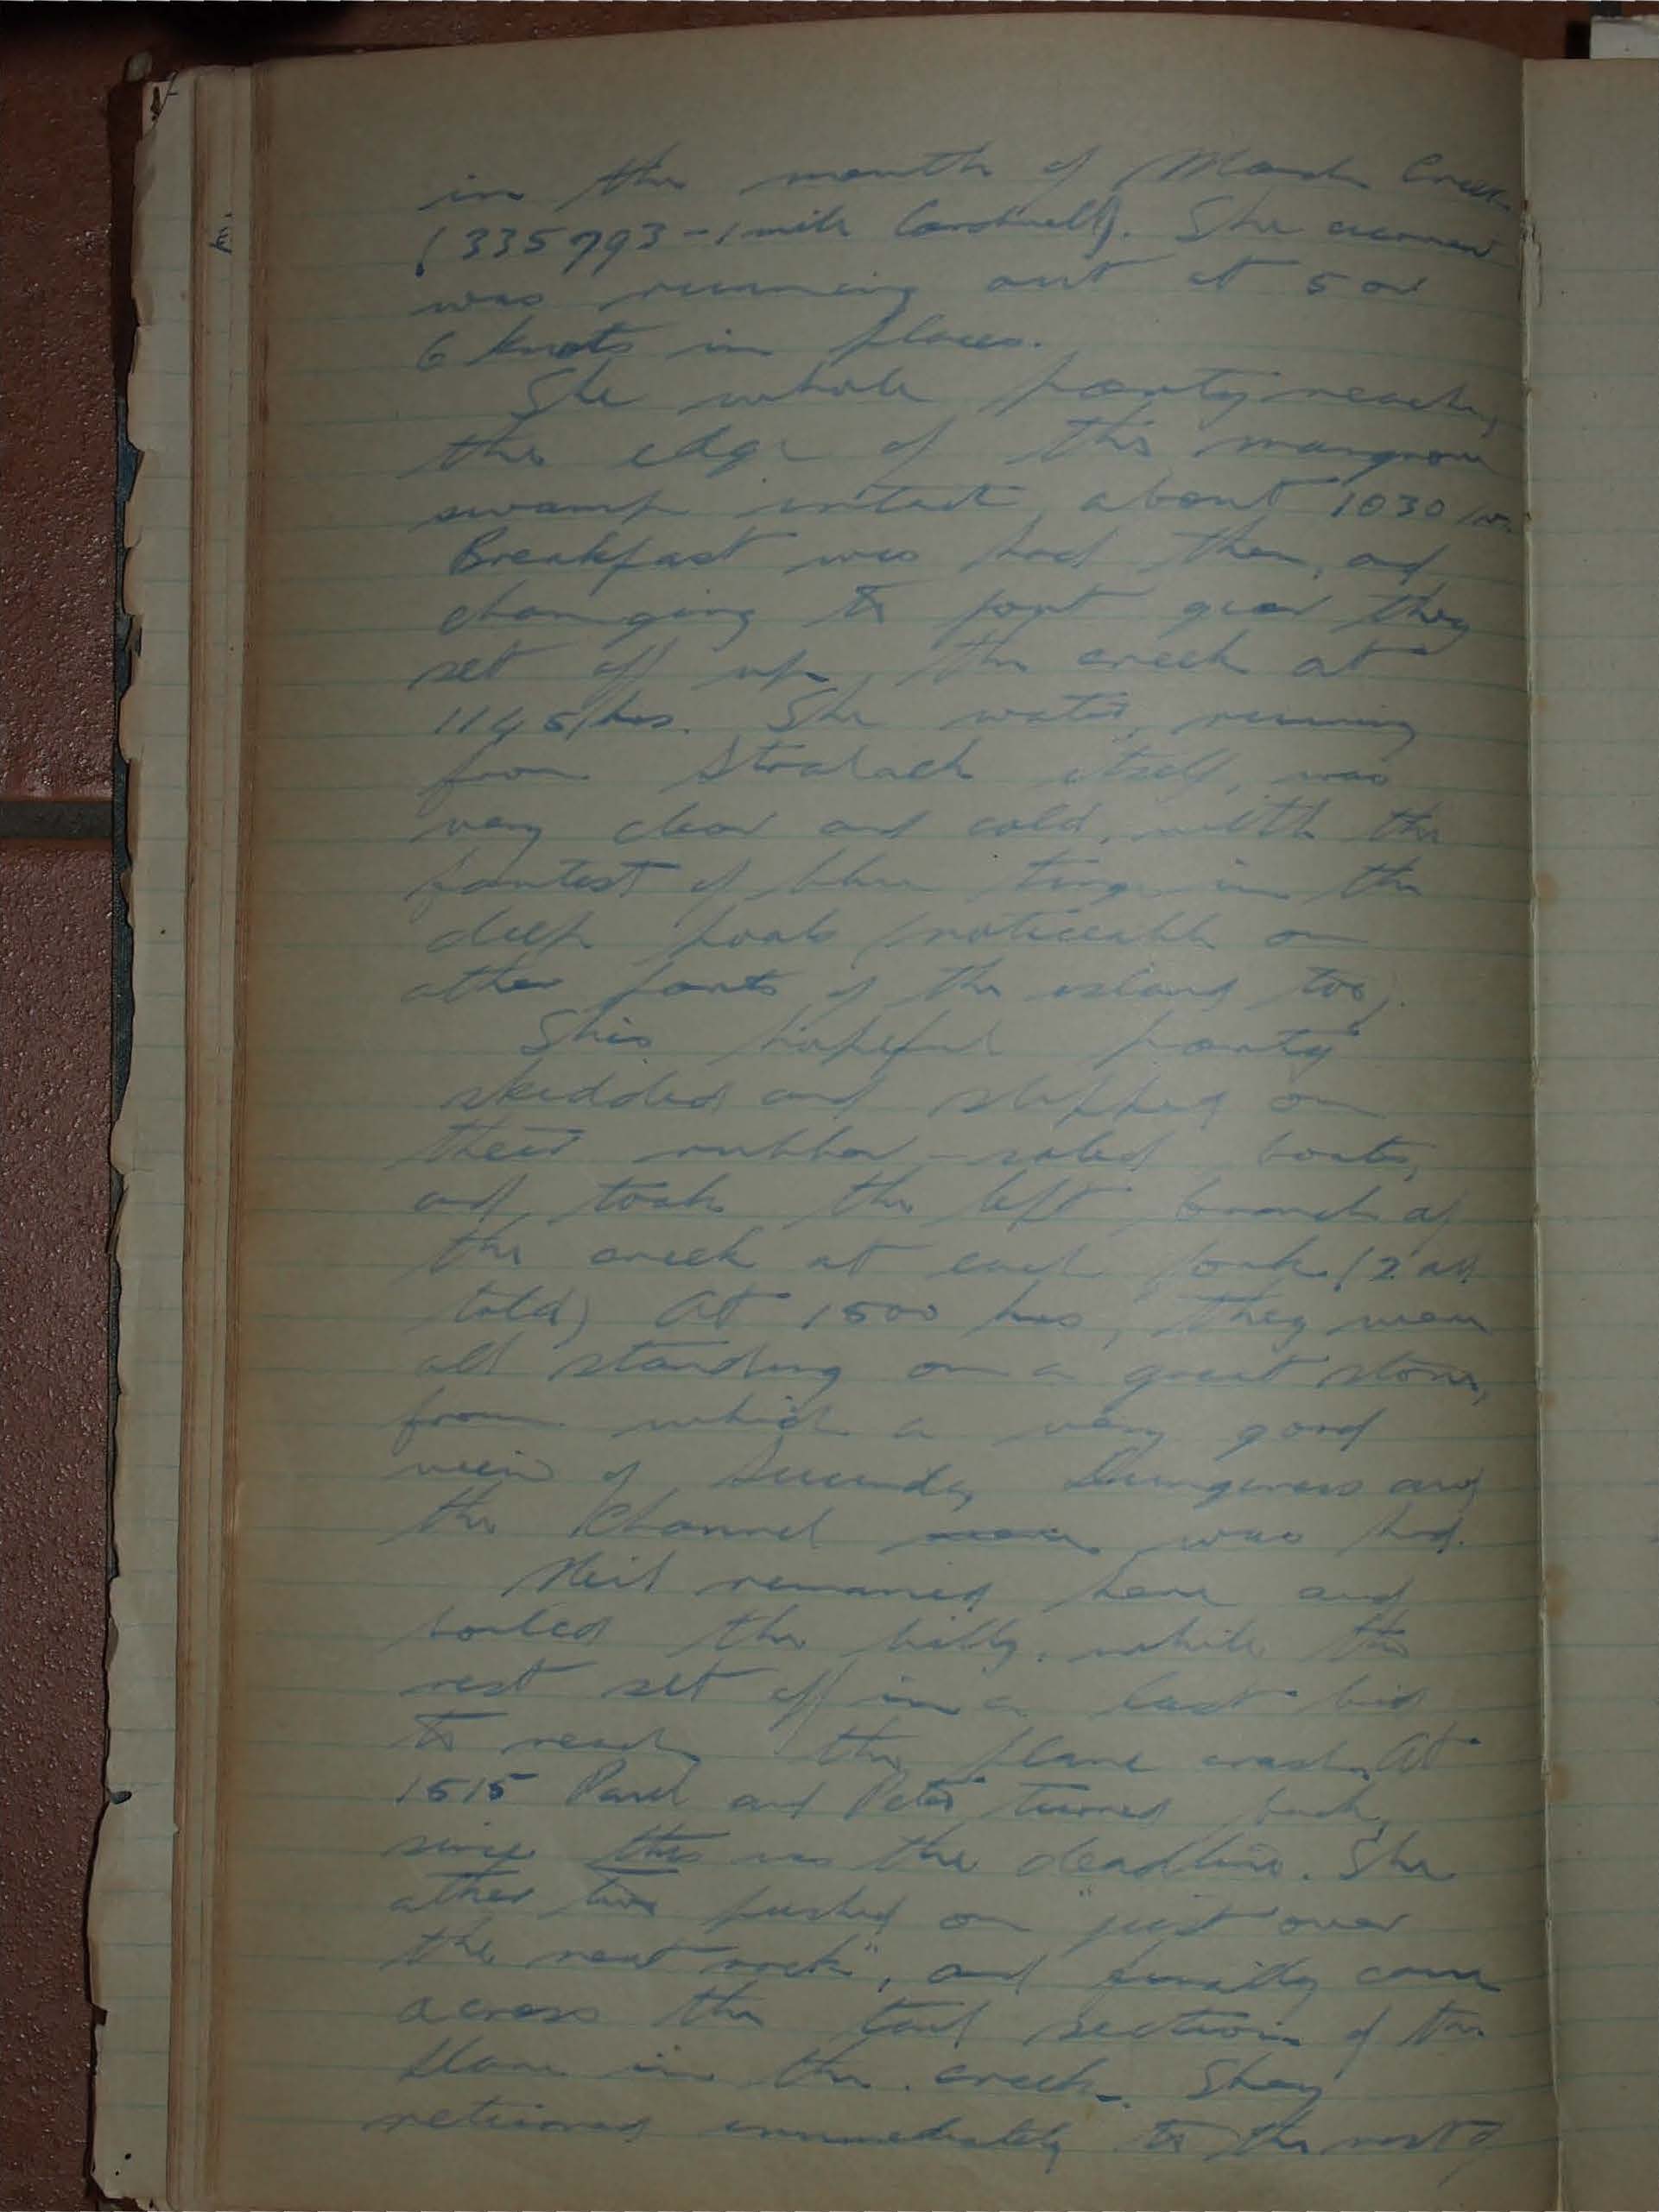 in the mouth of Creek
(335793 - 1 mile Cardwell). The current
was running out at 5 or
6 knots in places.
The whole party reached
the edge of this mangrove
swamp intact about 1030 hrs.
Breakfast was had then, and
changing to foot gear they
set off up the creek at
1145 hrs. The water, running
from itself, was
very clear and cold, with the
faintest of blue tinge in the
deep pools (noticeable on
other parts of the island too).
This hopeful party
skidded and slipped on
their rubber-soled boots,
and took the left branch of
the creek at each fork (2 all
told) At 1500 hrs, they were
all standing on a great stone,
from which a very good
view of and
the Channel was had.
Neil remained here and
boiled the billy, while the
rest set off in a last bid
to reach the plane crash. At
1515 Paul and Peter turned back,
since this was the deadline. The
other two pushed on "just over
the next rock", and finally came
across the tail section of the
plane in the creek. They
returned immediately to the rest of